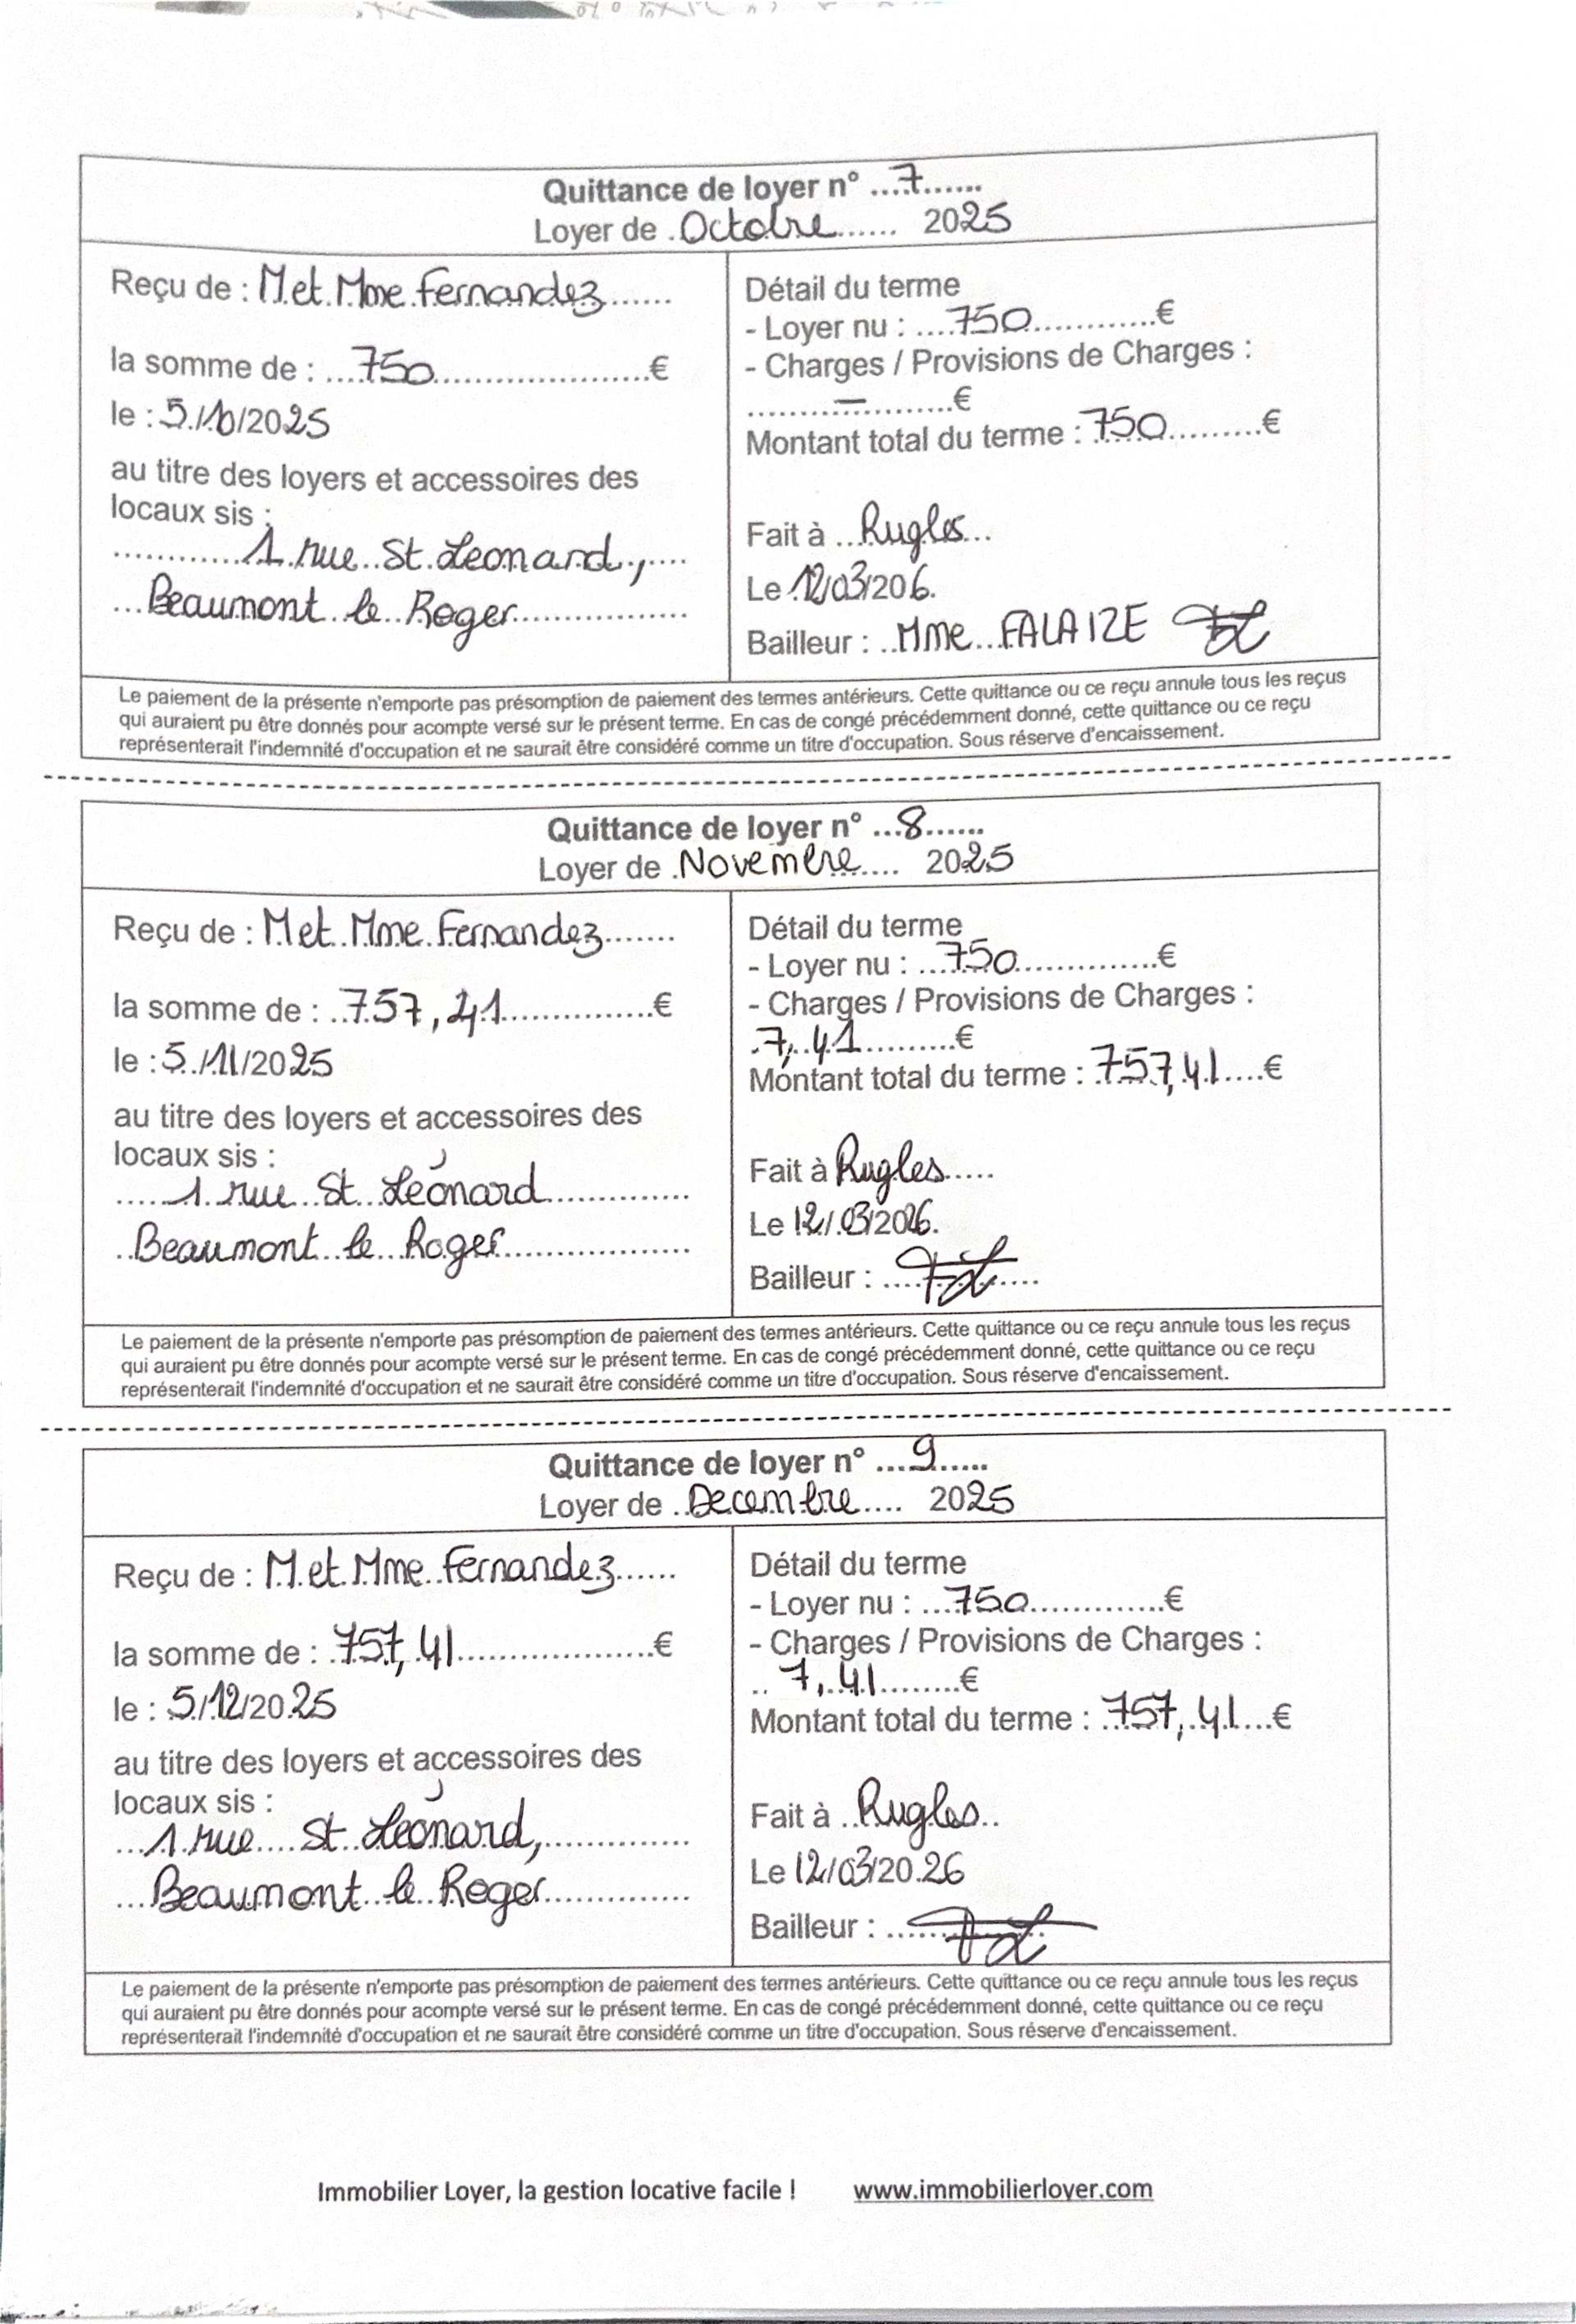 Quittance de loyer n° ....7......
Loyer de .Octobre...... 2025
Reçu de : M et Mme Fernandez.......
la somme de : ....750......................€
le : 5/10/2025
au titre des loyers et accessoires des
locaux sis :
............1 rue St Leonard,....
...Beaumont le Roger................
Détail du terme
- Loyer nu : ....750.............€
- Charges / Provisions de Charges :
.........—...........€
Montant total du terme : 750.........€
Fait à ...Rugles...
Le 12/03/206.
Bailleur : ..Mme FALAIZE
Le paiement de la présente n'emporte pas présomption de paiement des termes antérieurs. Cette quittance ou ce reçu annule tous les reçus
qui auraient pu être donnés pour acompte versé sur le présent terme. En cas de congé précédemment donné, cette quittance ou ce reçu
représenterait l'indemnité d'occupation et ne saurait être considéré comme un titre d'occupation. Sous réserve d'encaissement.
Quittance de loyer n° ...8......
Loyer de .Novembre.... 2025
Reçu de : M et Mme Fernandez.......
la somme de : ..757,41...............€
le : 5/11/2025
au titre des loyers et accessoires des
locaux sis :
......1 rue St Léonard..............
..Beaumont le Roger..................
Détail du terme
- Loyer nu : ...750...............€
- Charges / Provisions de Charges :
.7,41.........€
Montant total du terme : 757,41....€
Fait à Rugles.....
Le 12/03/2026.
Bailleur : ....
Le paiement de la présente n'emporte pas présomption de paiement des termes antérieurs. Cette quittance ou ce reçu annule tous les reçus
qui auraient pu être donnés pour acompte versé sur le présent terme. En cas de congé précédemment donné, cette quittance ou ce reçu
représenterait l'indemnité d'occupation et ne saurait être considéré comme un titre d'occupation. Sous réserve d'encaissement.
Quittance de loyer n° ....9......
Loyer de ..Decembre.... 2025
Reçu de : M et Mme Fernandez......
la somme de : .757,41....................€
le : 5/12/2025
au titre des loyers et accessoires des
locaux sis :
...1 rue St Léonard,...............
...Beaumont le Roger...............
Détail du terme
- Loyer nu : ...750..............€
- Charges / Provisions de Charges :
..7,41.........€
Montant total du terme : .757,41...€
Fait à ..Rugles..
Le 12/03/2026
Bailleur : ......
Le paiement de la présente n'emporte pas présomption de paiement des termes antérieurs. Cette quittance ou ce reçu annule tous les reçus
qui auraient pu être donnés pour acompte versé sur le présent terme. En cas de congé précédemment donné, cette quittance ou ce reçu
représenterait l'indemnité d'occupation et ne saurait être considéré comme un titre d'occupation. Sous réserve d'encaissement.
Immobilier Loyer, la gestion locative facile ! www.immobilierloyer.com